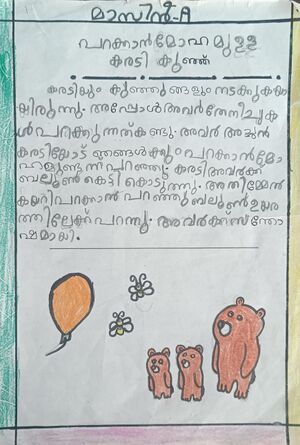 മാസിൻ-A
പറക്കാൻ മോഹമുള്ള
കരടി കുഞ്ഞ്
കരടിയും കുഞ്ഞുങ്ങളും നടക്കുകയാ
യിരുന്നു. അപ്പോൾ അവർ തേനീച്ചക
ൾ പറക്കുന്നത് കണ്ടു. അവർ അച്ഛൻ
കരടിയോട് ഞങ്ങൾക്കും പറക്കാൻ മോ
ഹമുണ്ടന്ന് പറഞ്ഞു. കരടി അവർക്ക്
ബലൂൺ കെട്ടി കൊടുത്തു. അതിമ്മേൽ
കയറി പറക്കാൻ പറഞ്ഞു ബലൂൺ ഉയര
ത്തിലേക്ക് പറന്നു. അവർക്ക് സന്തോ
ഷമായി.